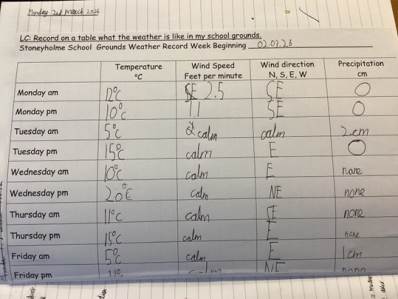 Monday 2nd March 2026
LC: Record on a table what the weather is like in my school grounds.
Stoneyholme School Grounds Weather Record Week Beginning 02.03.26
Temperature °C Wind Speed Feet per minute Wind direction N, S, E, W Precipitation cm
Monday am 12°C 2.5 SE 0
Monday pm 10°C 1 SE 0
Tuesday am 5°C calm calm 2cm
Tuesday pm 15°C calm E 0
Wednesday am 10°C calm E none
Wednesday pm 20°C calm NE none
Thursday am 11°C calm none
Thursday pm 15°C calm E none
Friday am 5°C calm E 1cm
Friday pm NE none